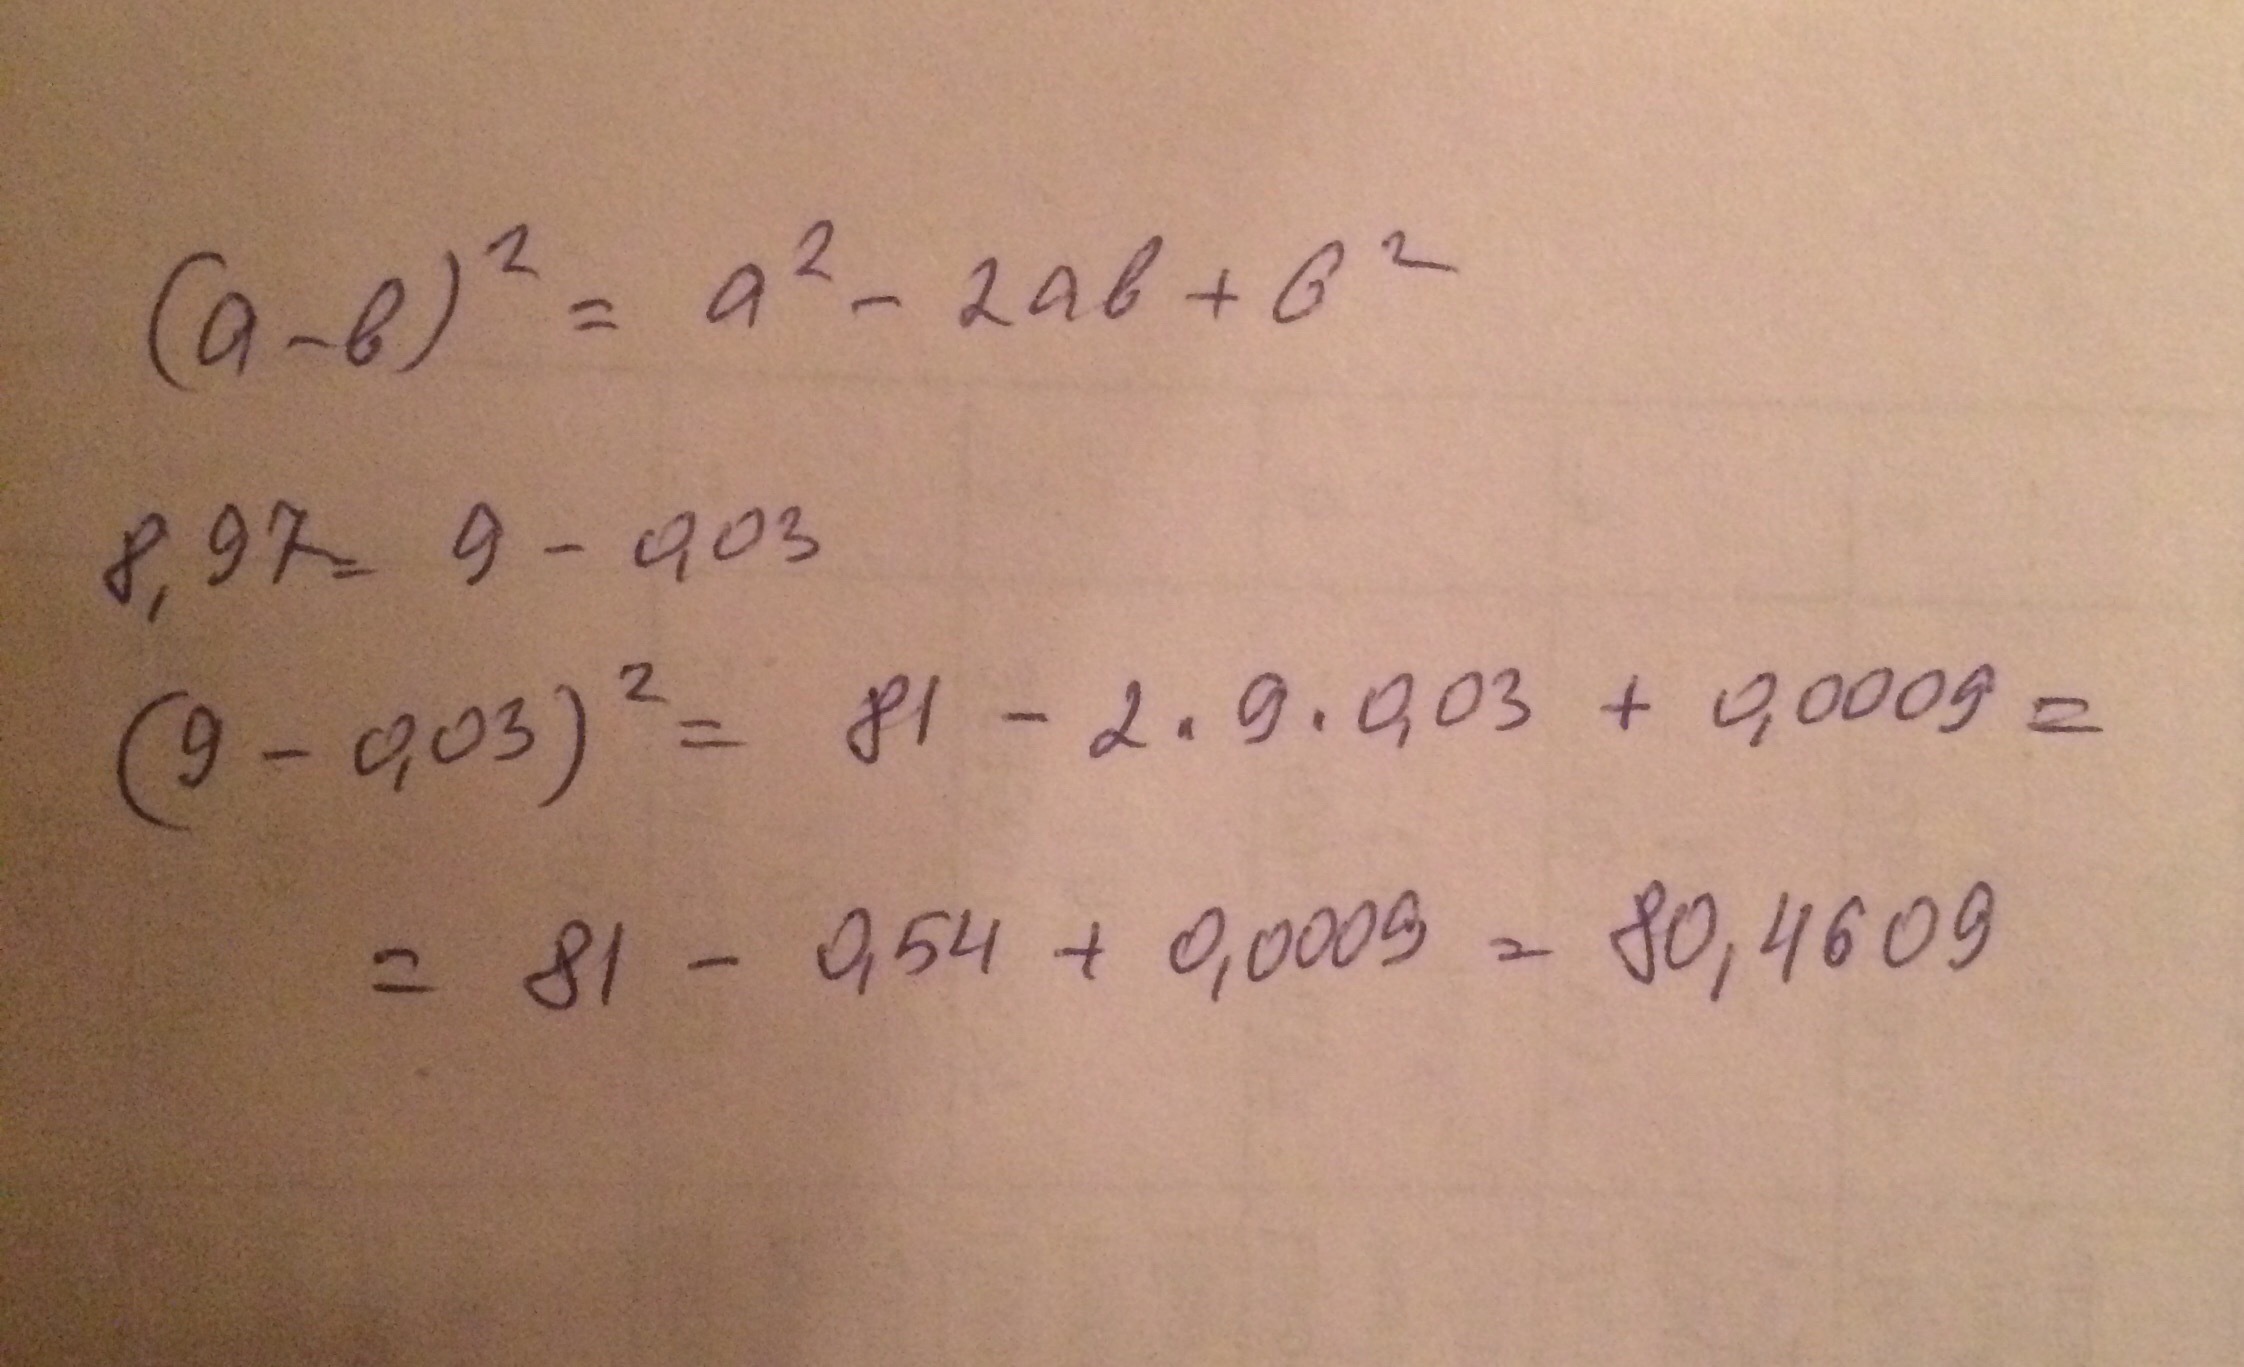 (a-b)² = a² - 2ab + b²
8,97 = 9 - 0,03
(9 - 0,03)² = 81 - 2 · 9 · 0,03 + 0,0009 =
= 81 - 0,54 + 0,0009 = 80,4609